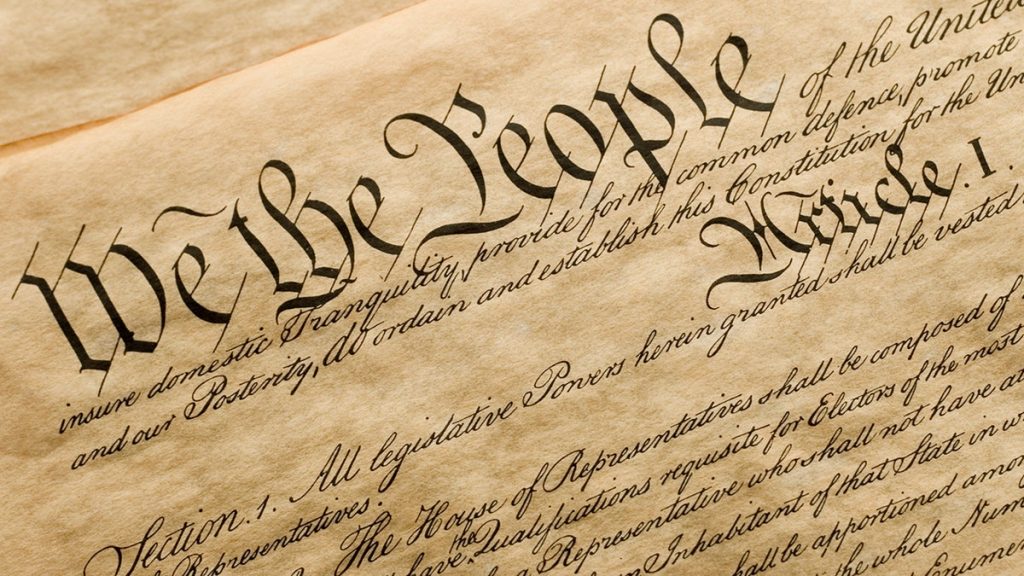 We the People of the United
insure domestic Tranquility, provide for the common defence, promote
and our Posterity, do ordain and establish this Constitution for the Uni
Article. I.
Section. 1. All legislative Powers herein granted shall be vested
Representatives.
The House of Representatives shall be composed of
have the Qualifications requisite for Electors of the most
Representative who shall not have at
Inhabitant of that State in w
shall be apportioned amon
the whole Num
Enumer